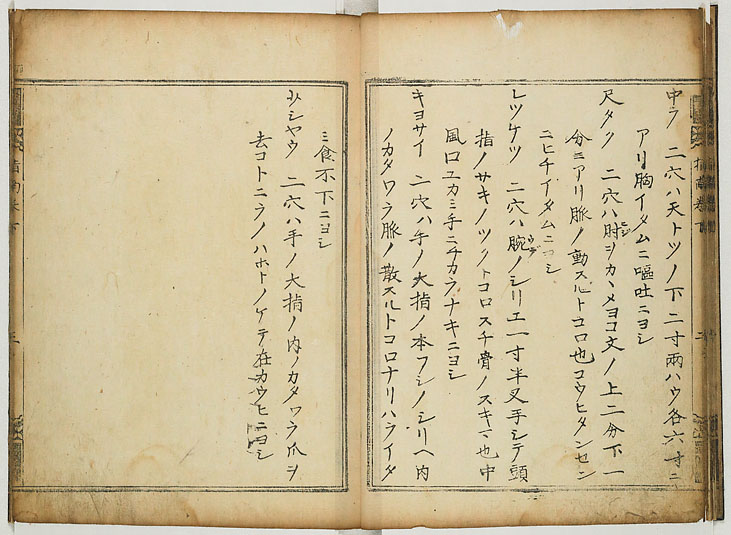 中ラ 二穴ハ天トツノ下二寸兩ハウ各六寸ニ
アリ胸イタムニ嘔吐ニヨシ
尺タク 二穴ハ肘ヲカヽメヨコ文ノ上二分下一
分ニアリ脈ノ動スルトコロ也コウヒタンセン
ニヒチイタムニヨシ
レツケツ 二穴ハ腕ノシリエ一寸半叉手シテ頭
指ノサキノツクトコロスチ骨ノスキマ也中
風口ユカミ手ニチカラナキニヨシ
キヨサイ 二穴ハ手ノ大指ノ本フシノシリヘ内
ノカタワラ脈ノ散スルトコロナリハライタ
ミ食不下ニヨシ
少シヤウ 二穴ハ手ノ大指ノ内ノカタワラ爪ヲ
去コトニラノハホトノケテ在カウヒニヨシ